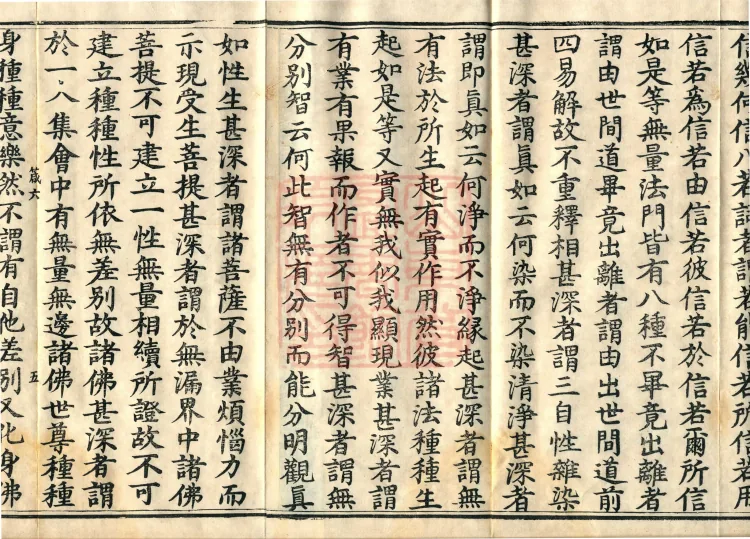 信若爲信若由信若彼信若於信若爾所信
如是等無量法門皆有八種不畢竟出離者
謂由世間道畢竟出離者謂由出世間道前
四易解故不重釋相甚深者謂三自性雜染
甚深者謂眞如云何染而不染清淨甚深者
謂即眞如云何淨而不淨緣起甚深者謂無
有法於所生起有實作用然彼諸法種種生
起如是等又實無我似我顯現業甚深者謂
有業有果報而作者不可得智甚深者謂無
分別智云何此智無有分別而能分明觀眞
如性生甚深者謂諸菩薩不由業煩惱力而
示現受生菩提甚深者謂於無漏界中諸佛
菩提不可建立一性無量相續所證故不可
建立種種性所依無差別故諸佛甚深者謂
於一八集會中有無量無邊諸佛世尊種種
箴六 五
身種種意樂然不謂有自他差別又化身佛